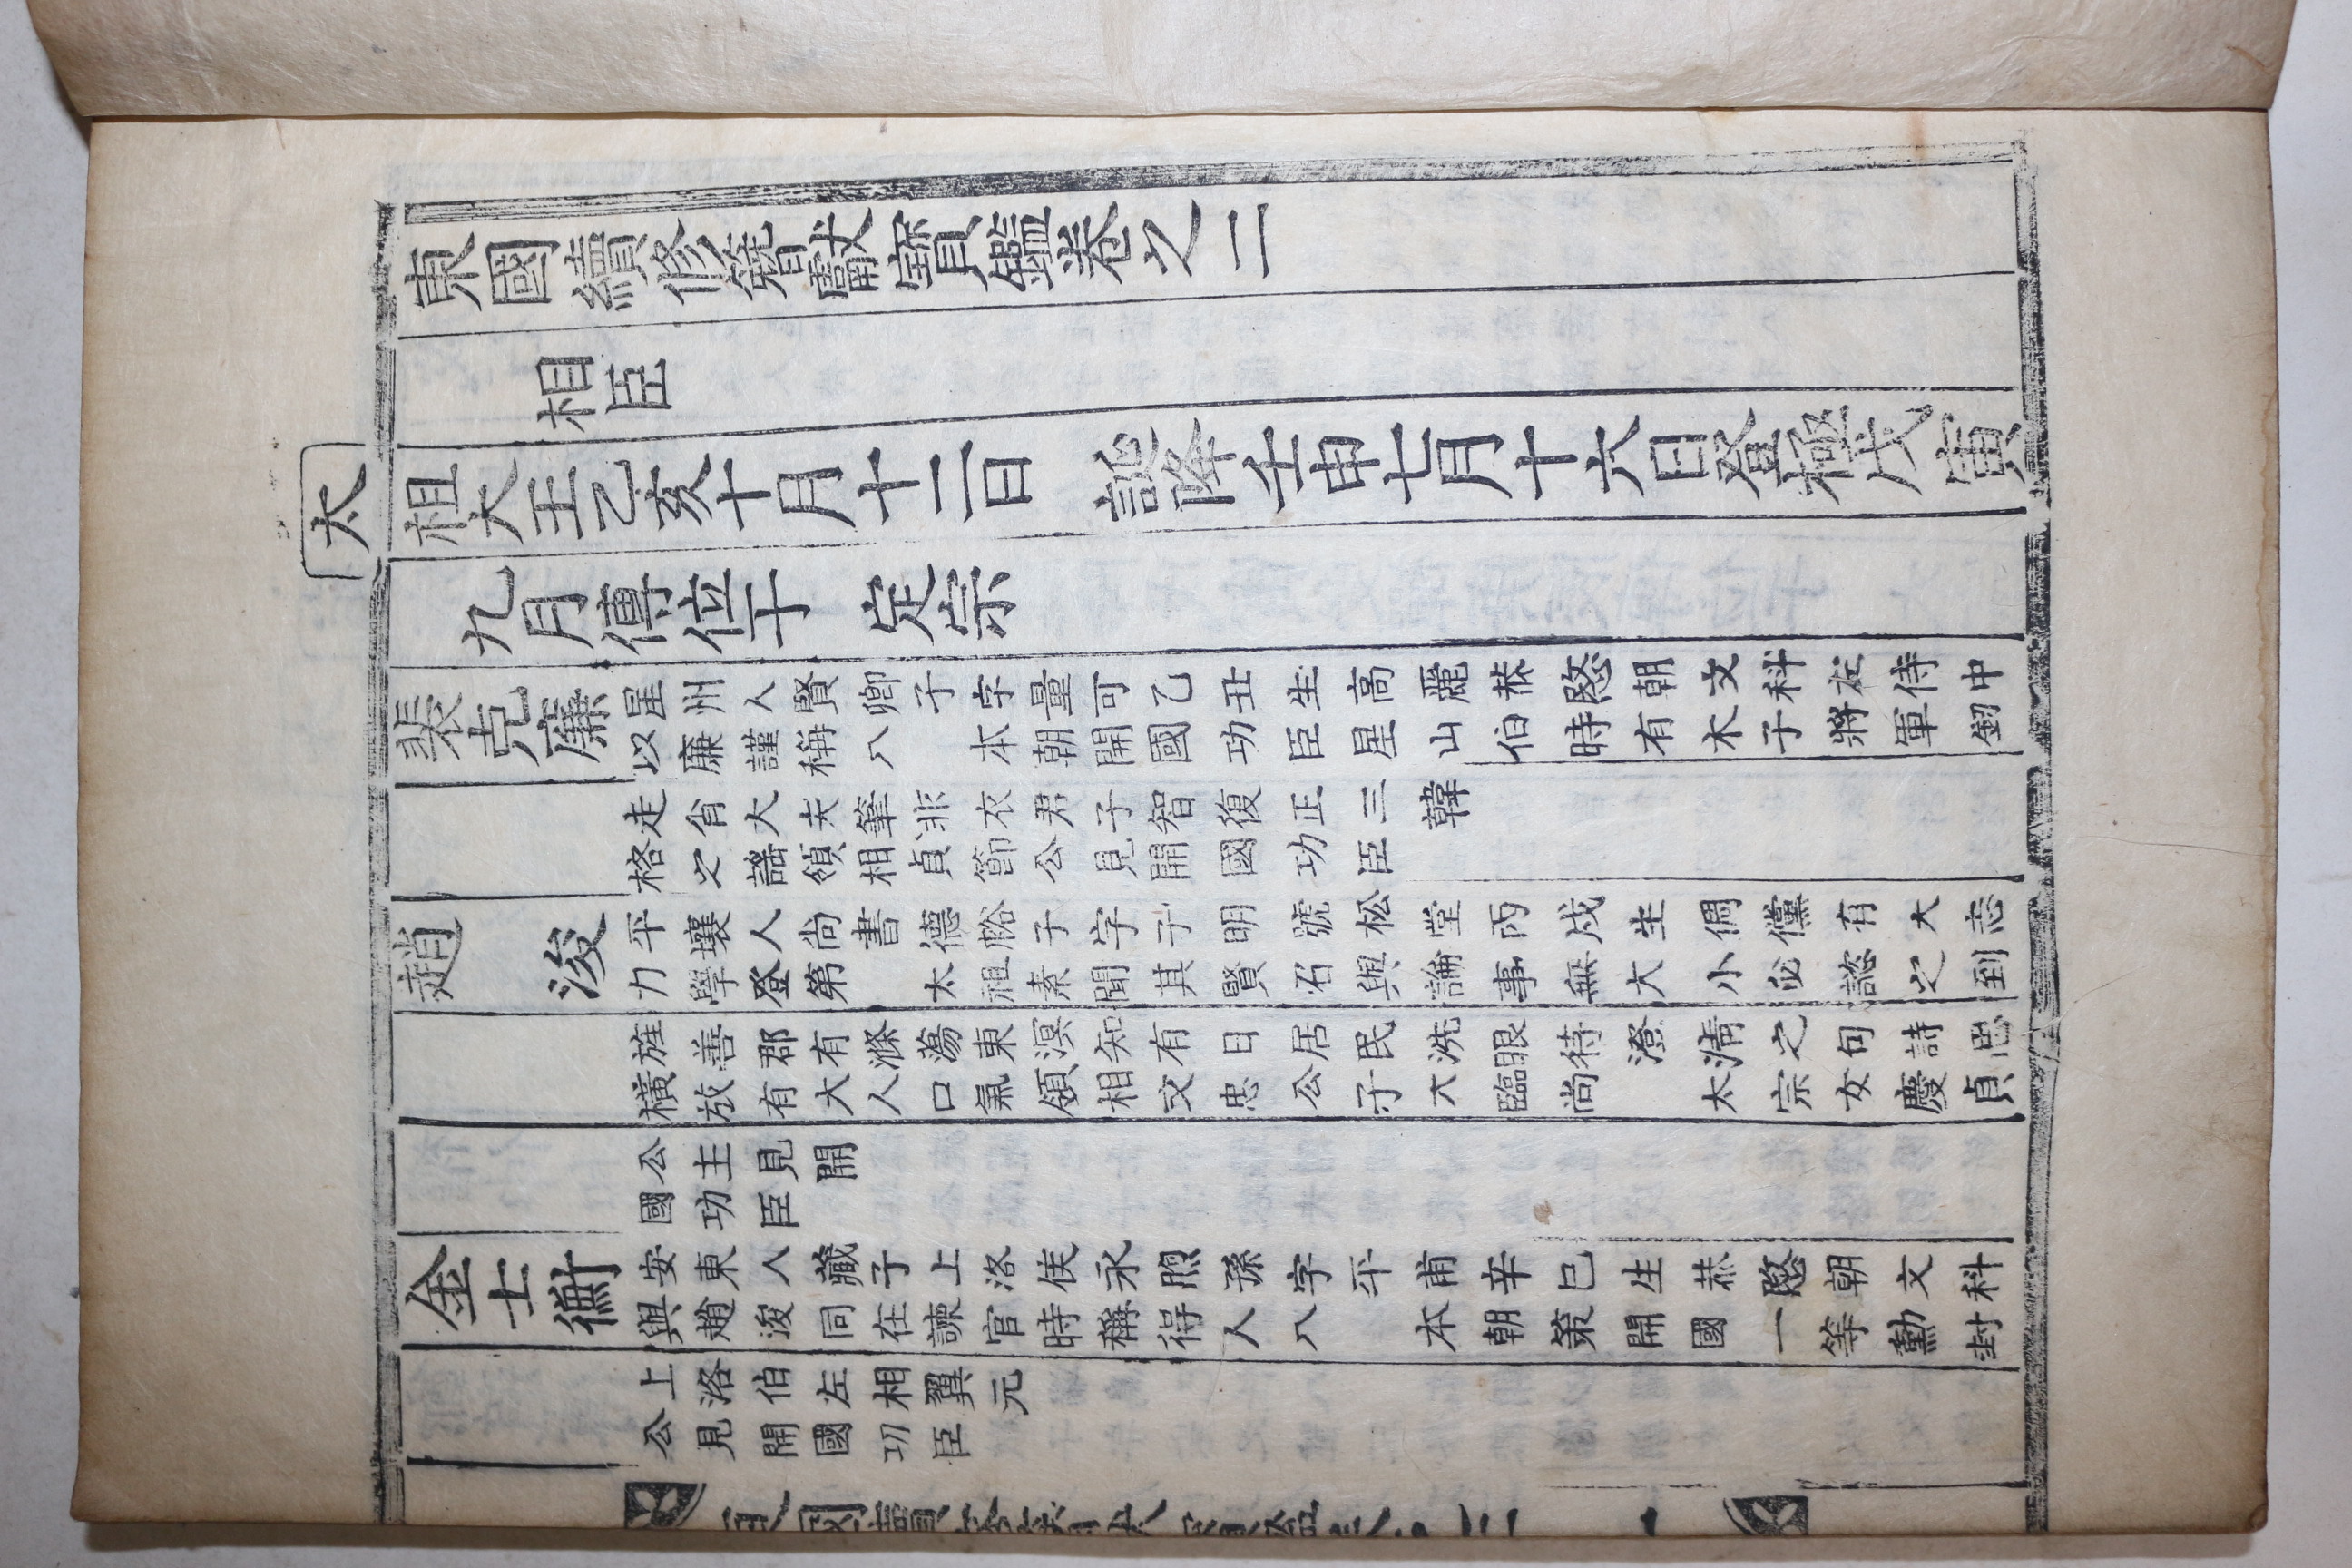 東國續修簪獻寶鑑卷之二
相臣
太
祖大王乙亥十月十二日 誕降壬申七月十六日登極戊寅
九月傳位于 定宗
裴克廉
星州人賢卿子字量可乙丑生高麗恭愍朝文科左侍中
以廉謹稱入 本朝開國功臣星山伯時有木子將軍釰
走肖大夫筆非衣君子智復正三韓
格之謠領相貞節公見開國功臣
趙 浚
平壤人尚書德裕子字子明號松堂丙戌生倜儻有大志
力學登第 太祖素聞其賢召與論事無大小必諮之到
旌善郡有滌蕩東溟知有日居民洗眼待澄淸之句詩思
橫放有大人口氣領相文忠公子大臨尚 太宗女慶貞
公主見開
國功臣
金士衡
安東人藏子上洛侯永煦孫字平甫辛巳生恭愍朝文科
與趙浚同在諫官時稱得人入 本朝策開國一等勳封
上洛伯左相翼元
公見開國功臣
東國續修簪獻寶鑑卷之二
一